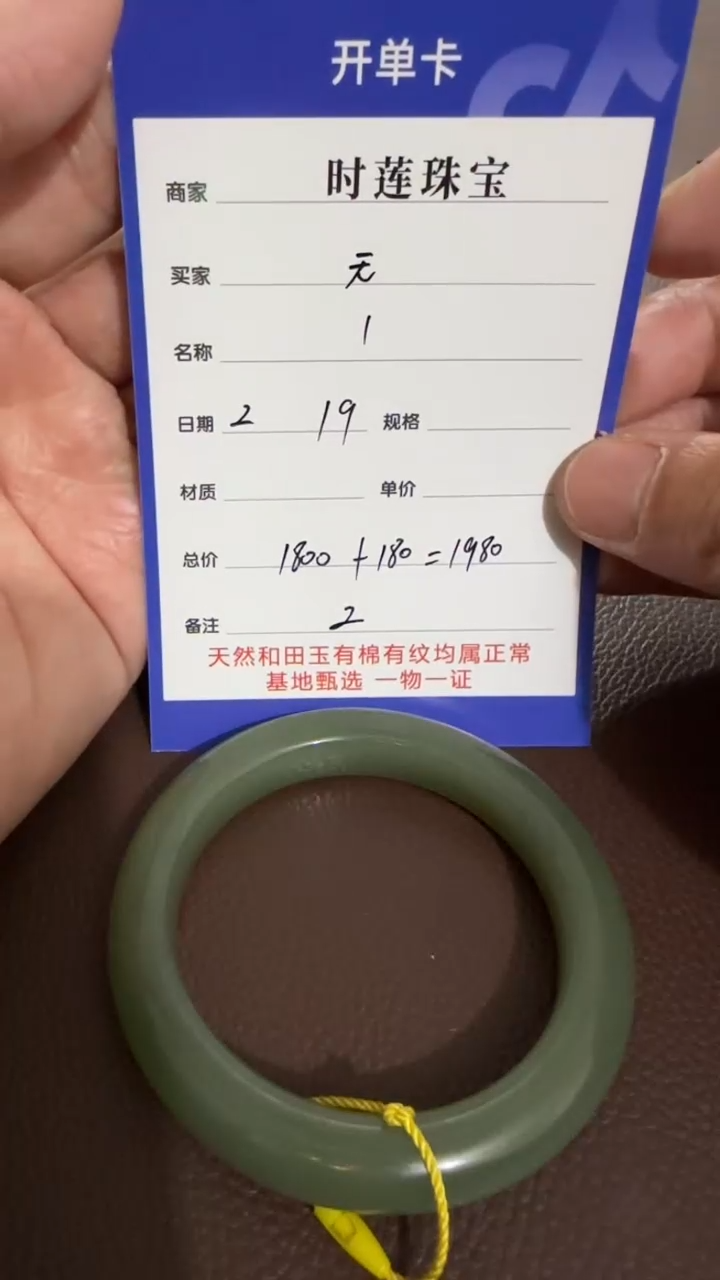 开单卡
商家 时莲珠宝
买家 无
名称 1
日期 2 19 规格
材质 单价
总价 1800+180=1980
备注 2
天然和田玉有棉有纹均属正常
基地甄选 一物一证